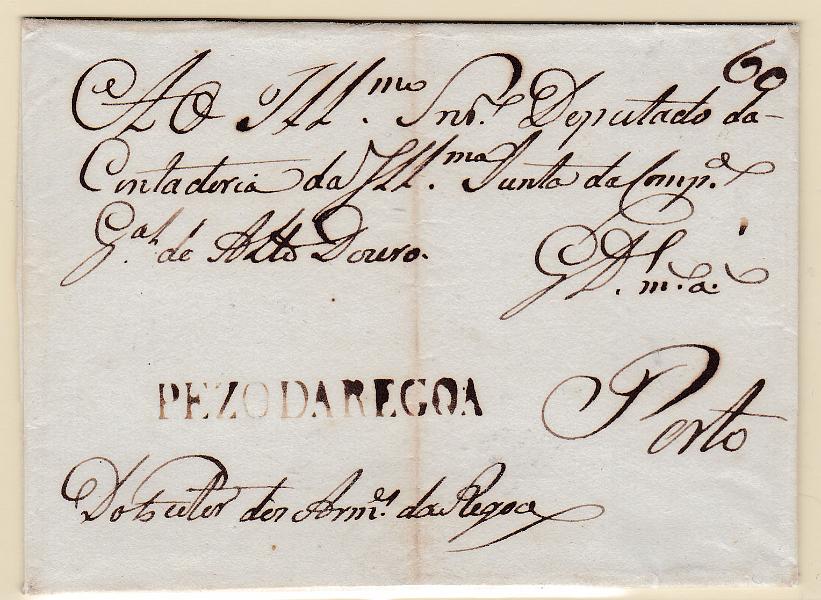 60
Ao Ill.mo Snr. Deputado da
Contadoria da Ill.ma Junta da Comp.ª
G.al do Alto Douro.
G D.s m.s a.s
PEZO DA REGOA
Porto
Do dos Arm.s da Regoa